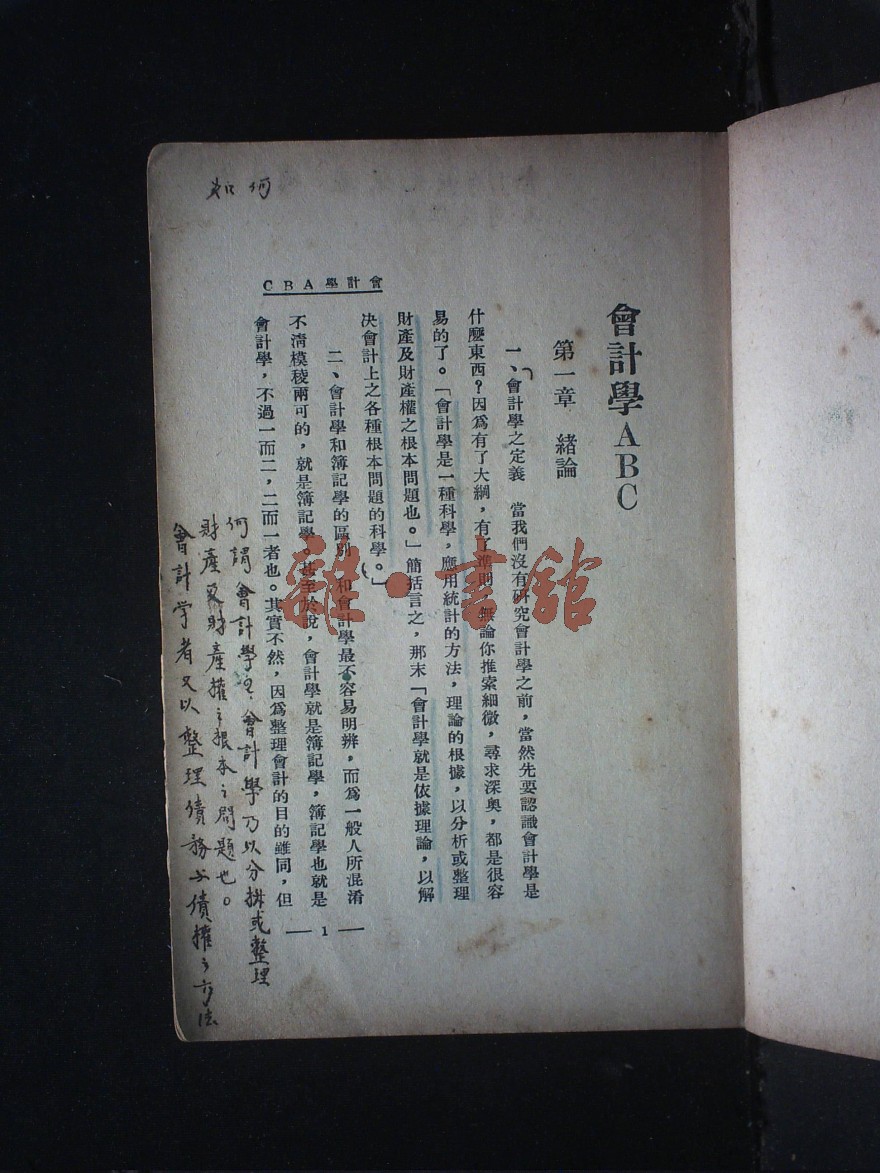 如何
會計學ABC
會計學ABC
第一章 緒論
一、會計學之定義 當我們沒有研究會計學之前，當然先要認識會計學是
什麼東西？因爲有了大綱，有了準則，無論你推索細微，尋求深奧，都是很容
易的了。「會計學是一種科學，應用統計的方法，理論的根據，以分析或整理
財產及財產權之根本問題也。」簡括言之，那末「會計學就是依據理論，以解
决會計上之各種根本問題的科學。」
二、會計學和簿記學的區別 和會計學最不容易明辨，而爲一般人所混淆
不清模稜兩可的，就是簿記學。甚至於說，會計學就是簿記學，簿記學也就是
會計學，不過一而二，二而一者也。其實不然，因爲整理會計的目的雖同，但
— 1 —
何謂會計學 會計學乃以分析或整理
財產及財產權之根本之問題也。
會計学者又以整理債務与債權之方法
雜·書館